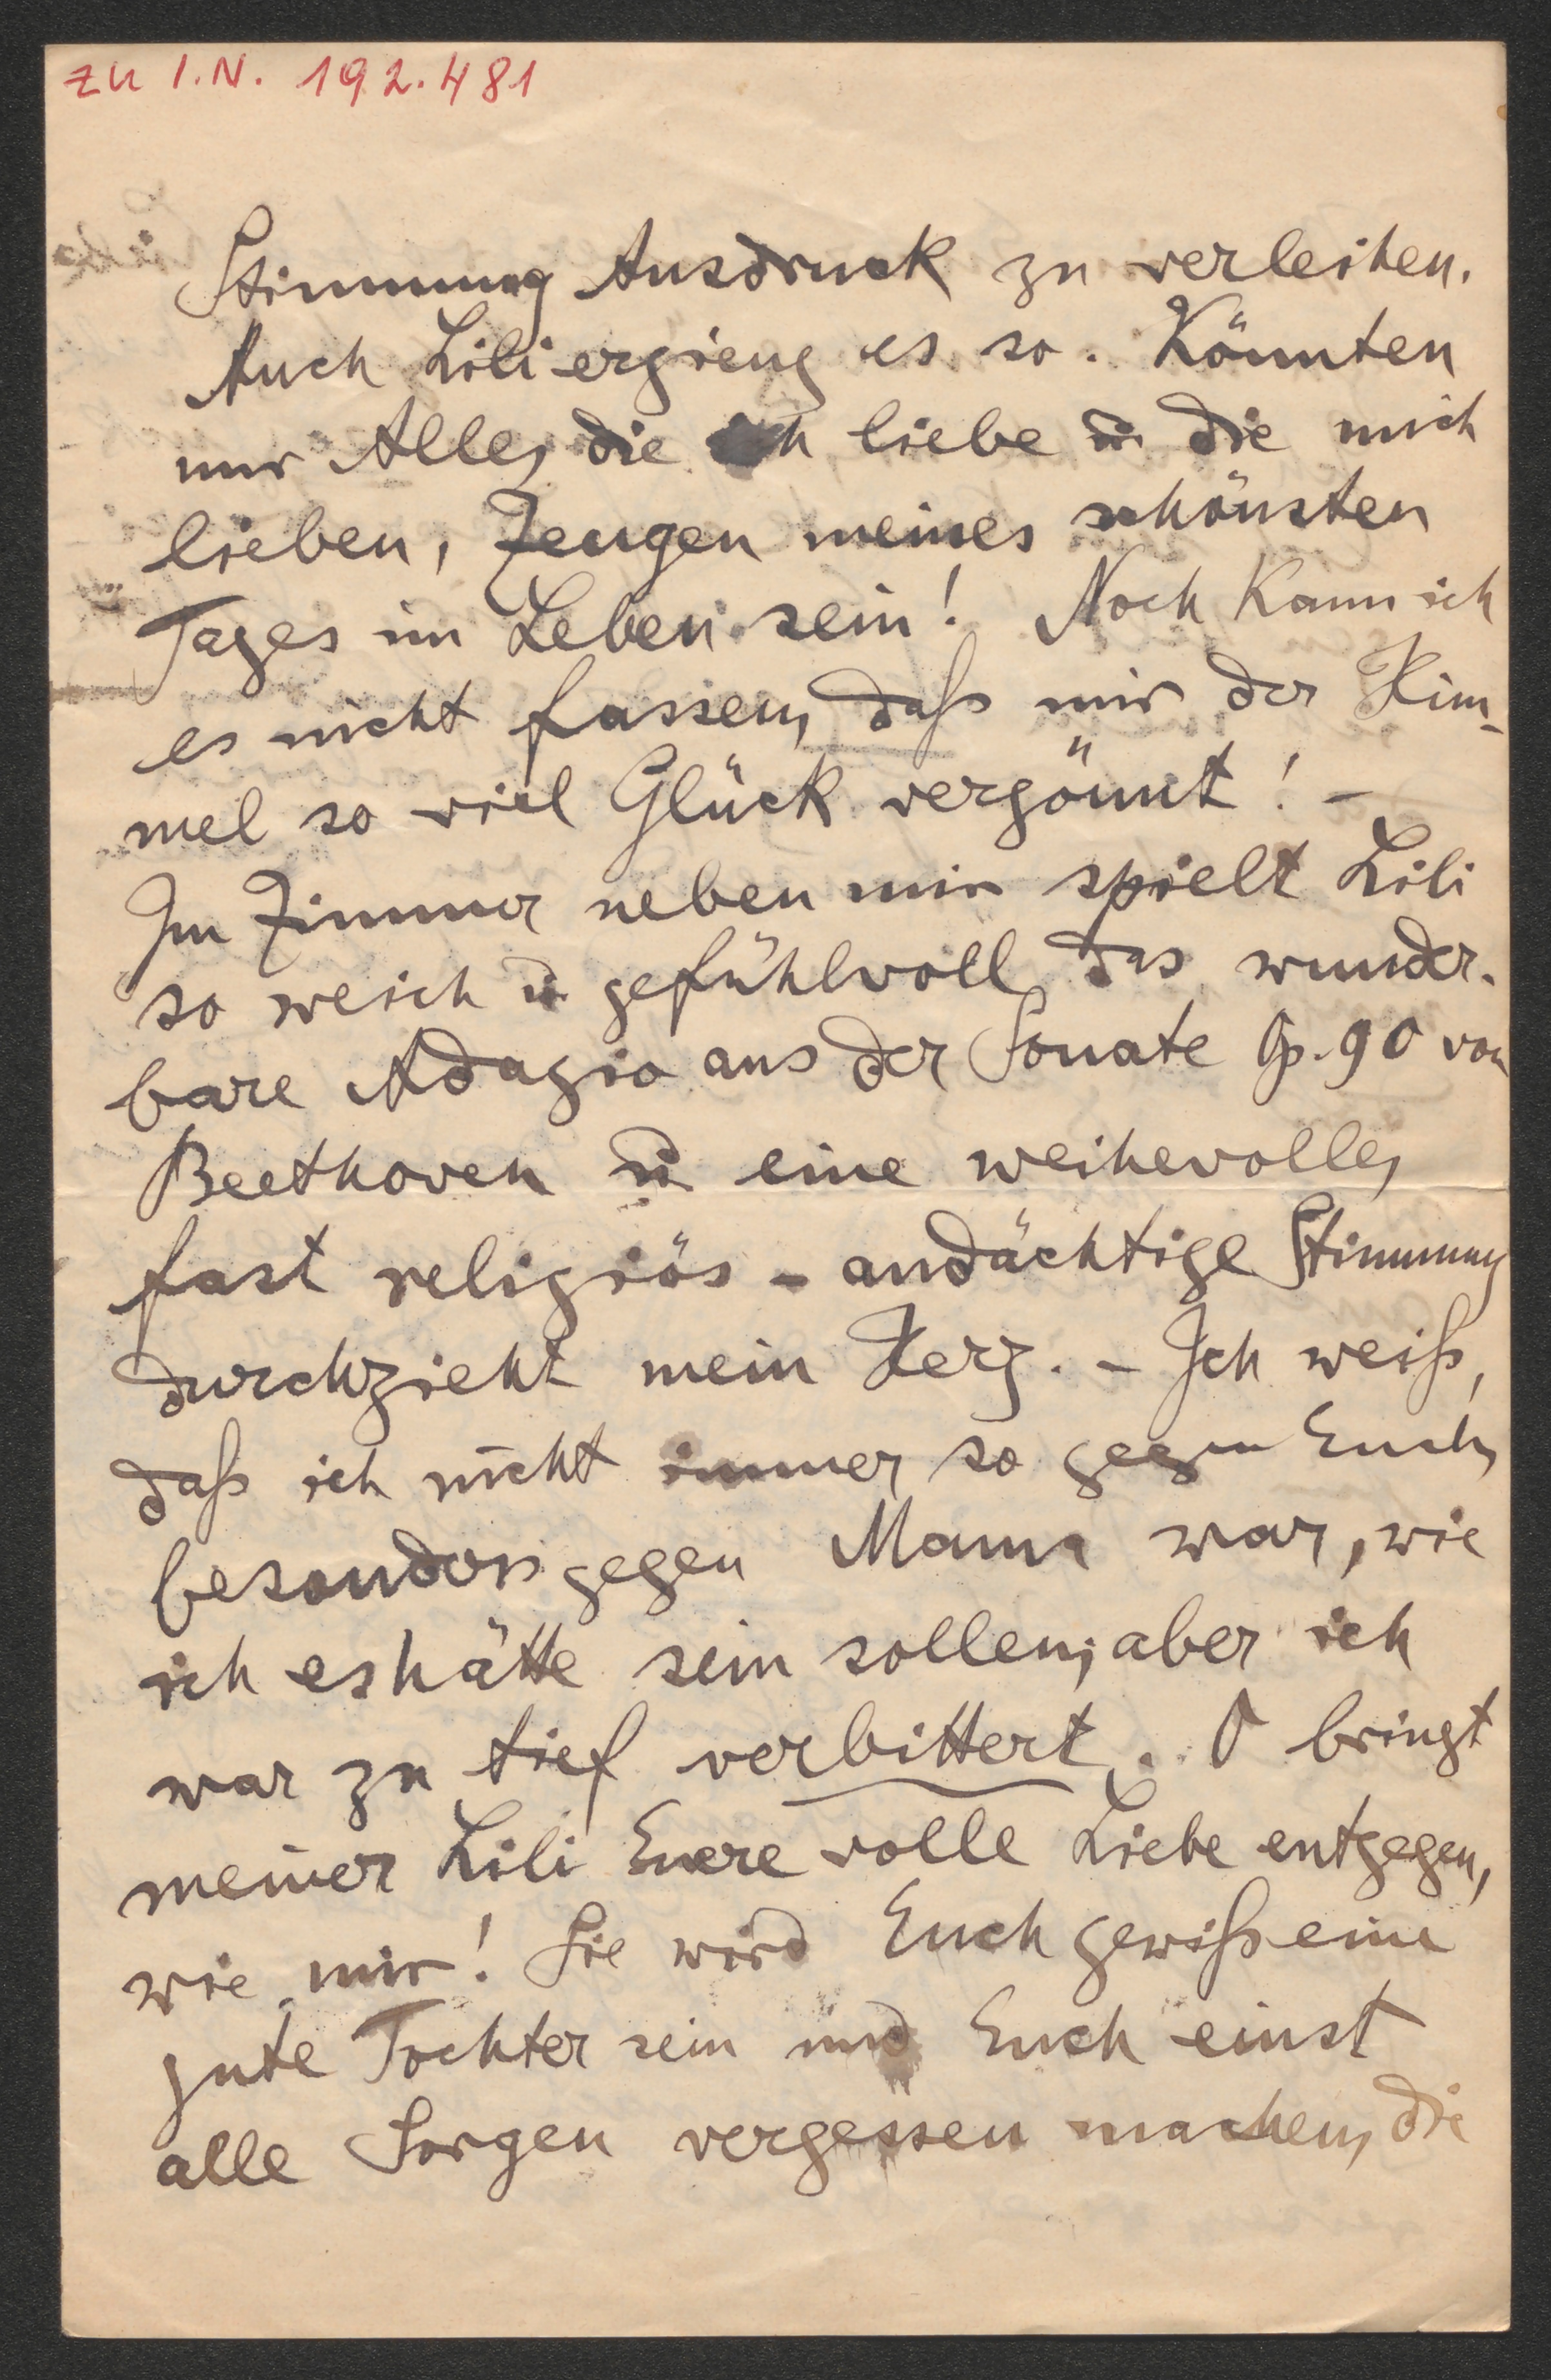 zu I.N. 192.481
Stimmung Ausdruck zu verleihen.
Auch Lili ergieng es so. Könnten
nur Alle, die ich liebe u die mich
lieben, Zeugen meines schönsten
Tages im Leben sein! Noch kann ich
es nicht fassen, daß mir der Him-
mel so viel Glück vergönnt! -
Im Zimmer neben mir spielt Lili
so weich u gefühlvoll das wunder-
bare Adagio aus der Sonate Op. 90 von
Beethoven u eine weihevolle,
fast religiös - andächtige Stimmung
durchzieht mein Herz. - Ich weiß,
daß ich nicht immer so gegen Euch,
besonders gegen Mama war, wie
ich es hätte sein sollen; aber ich
war zu tief verbittert. O bringt
meiner Lili Euere volle Liebe entgegen,
wie mir! Sie wird Euch gewiß eine
gute Tochter sein und Euch einst
alle Sorgen vergessen machen, die